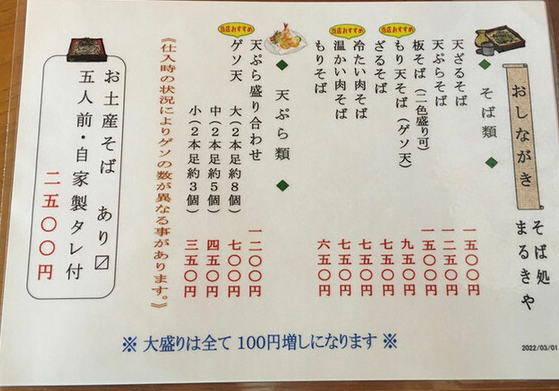 おしながき
そば処
まるきや
◆ そば類 ◆
天ざるそば 一五〇〇円
天ぷらそば 一二五〇円
板そば（二色盛り可） 一五〇〇円
当店おすすめ
もり天そば（ゲソ天） 九五〇円
ざるそば 七五〇円
当店おすすめ
冷たい肉そば 七五〇円
温かい肉そば 七五〇円
もりそば 六五〇円
◆ 天ぷら類 ◆
天ぷら盛り合わせ 一二〇〇円
当店おすすめ
ゲソ天 大（２本足約８個） 七〇〇円
中（２本足約５個） 四五〇円
小（２本足約３個） 三五〇円
《仕入時の状況によりゲソの数が異なる事があります。》
お土産そば あり☑
五人前・自家製タレ付
二五〇〇円
※ 大盛りは全て 100円増しになります ※
2022/03/01